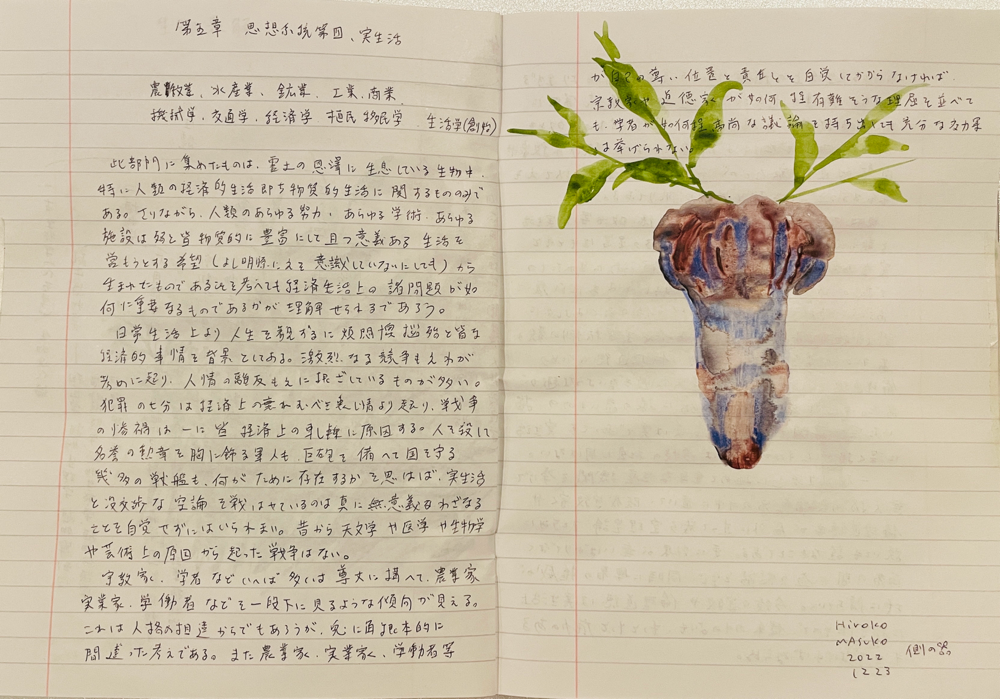 第五章 思想系統第四、実生活
農牧業、水産業、鉱業、工業、商業、
機械学、交通学、経済学 植民 移民学 生活学(創始)
此部門に集めたものは、霊土の恩澤に生息している生物中、
特に人類の経済的生活即ち物質的生活に関するもののみで
ある。さりながら、人類のあらゆる努力、あらゆる学術、あらゆる
施設は殆ど皆物質的に豊富にして且つ意義ある生活を
営もうとする希望(よし明瞭にこそ意識していないにしても)から
生まれたものであるそを考へても経済生活上の諸問題が如
何に重要なるものであるかが理解せられるであろう。
日常生活上より人生を観ずるに煩悶懊悩殆ど皆な
経済的事情を背景としてある。激烈なる競争もこれが
為めに起り、人情の離反もこれに根ざしているものが多い。
犯罪の七分は経済上の憲れむべき事情より起り、戦争
の惨禍は一に皆経済上の軋轢に原因する。人を殺して
名誉の勲章を胸に飾る軍人も、巨砲を備へて国を守る
幾多の戦艦も、何がために存在するかを思はば、実生活
と没交渉な空論を戦はせているのは真に無意義なわざなる
ことを自覚せずにはいられまい。昔から天文学や医学や生物学
や芸術上の原因から起った戦争はない。
宗教家、学者などといへば多くは尊大に構へて、農業家
実業家、労働者などを一段下に見るような傾向が見える。
これは人格の相違からでもあろうが、実に再根本的に
間違った考えである。また農業家、実業家、労働者等
が自己の尊い位置と責任とを自覚してかからなければ、
宗教家や道徳家が如何程有難そうな理屈を並べて
も、学者が如何程高尚な議論を持ち出しても充分なる効果
は挙げられない。
Hiroko
mAsuko
2022
1223
側の器